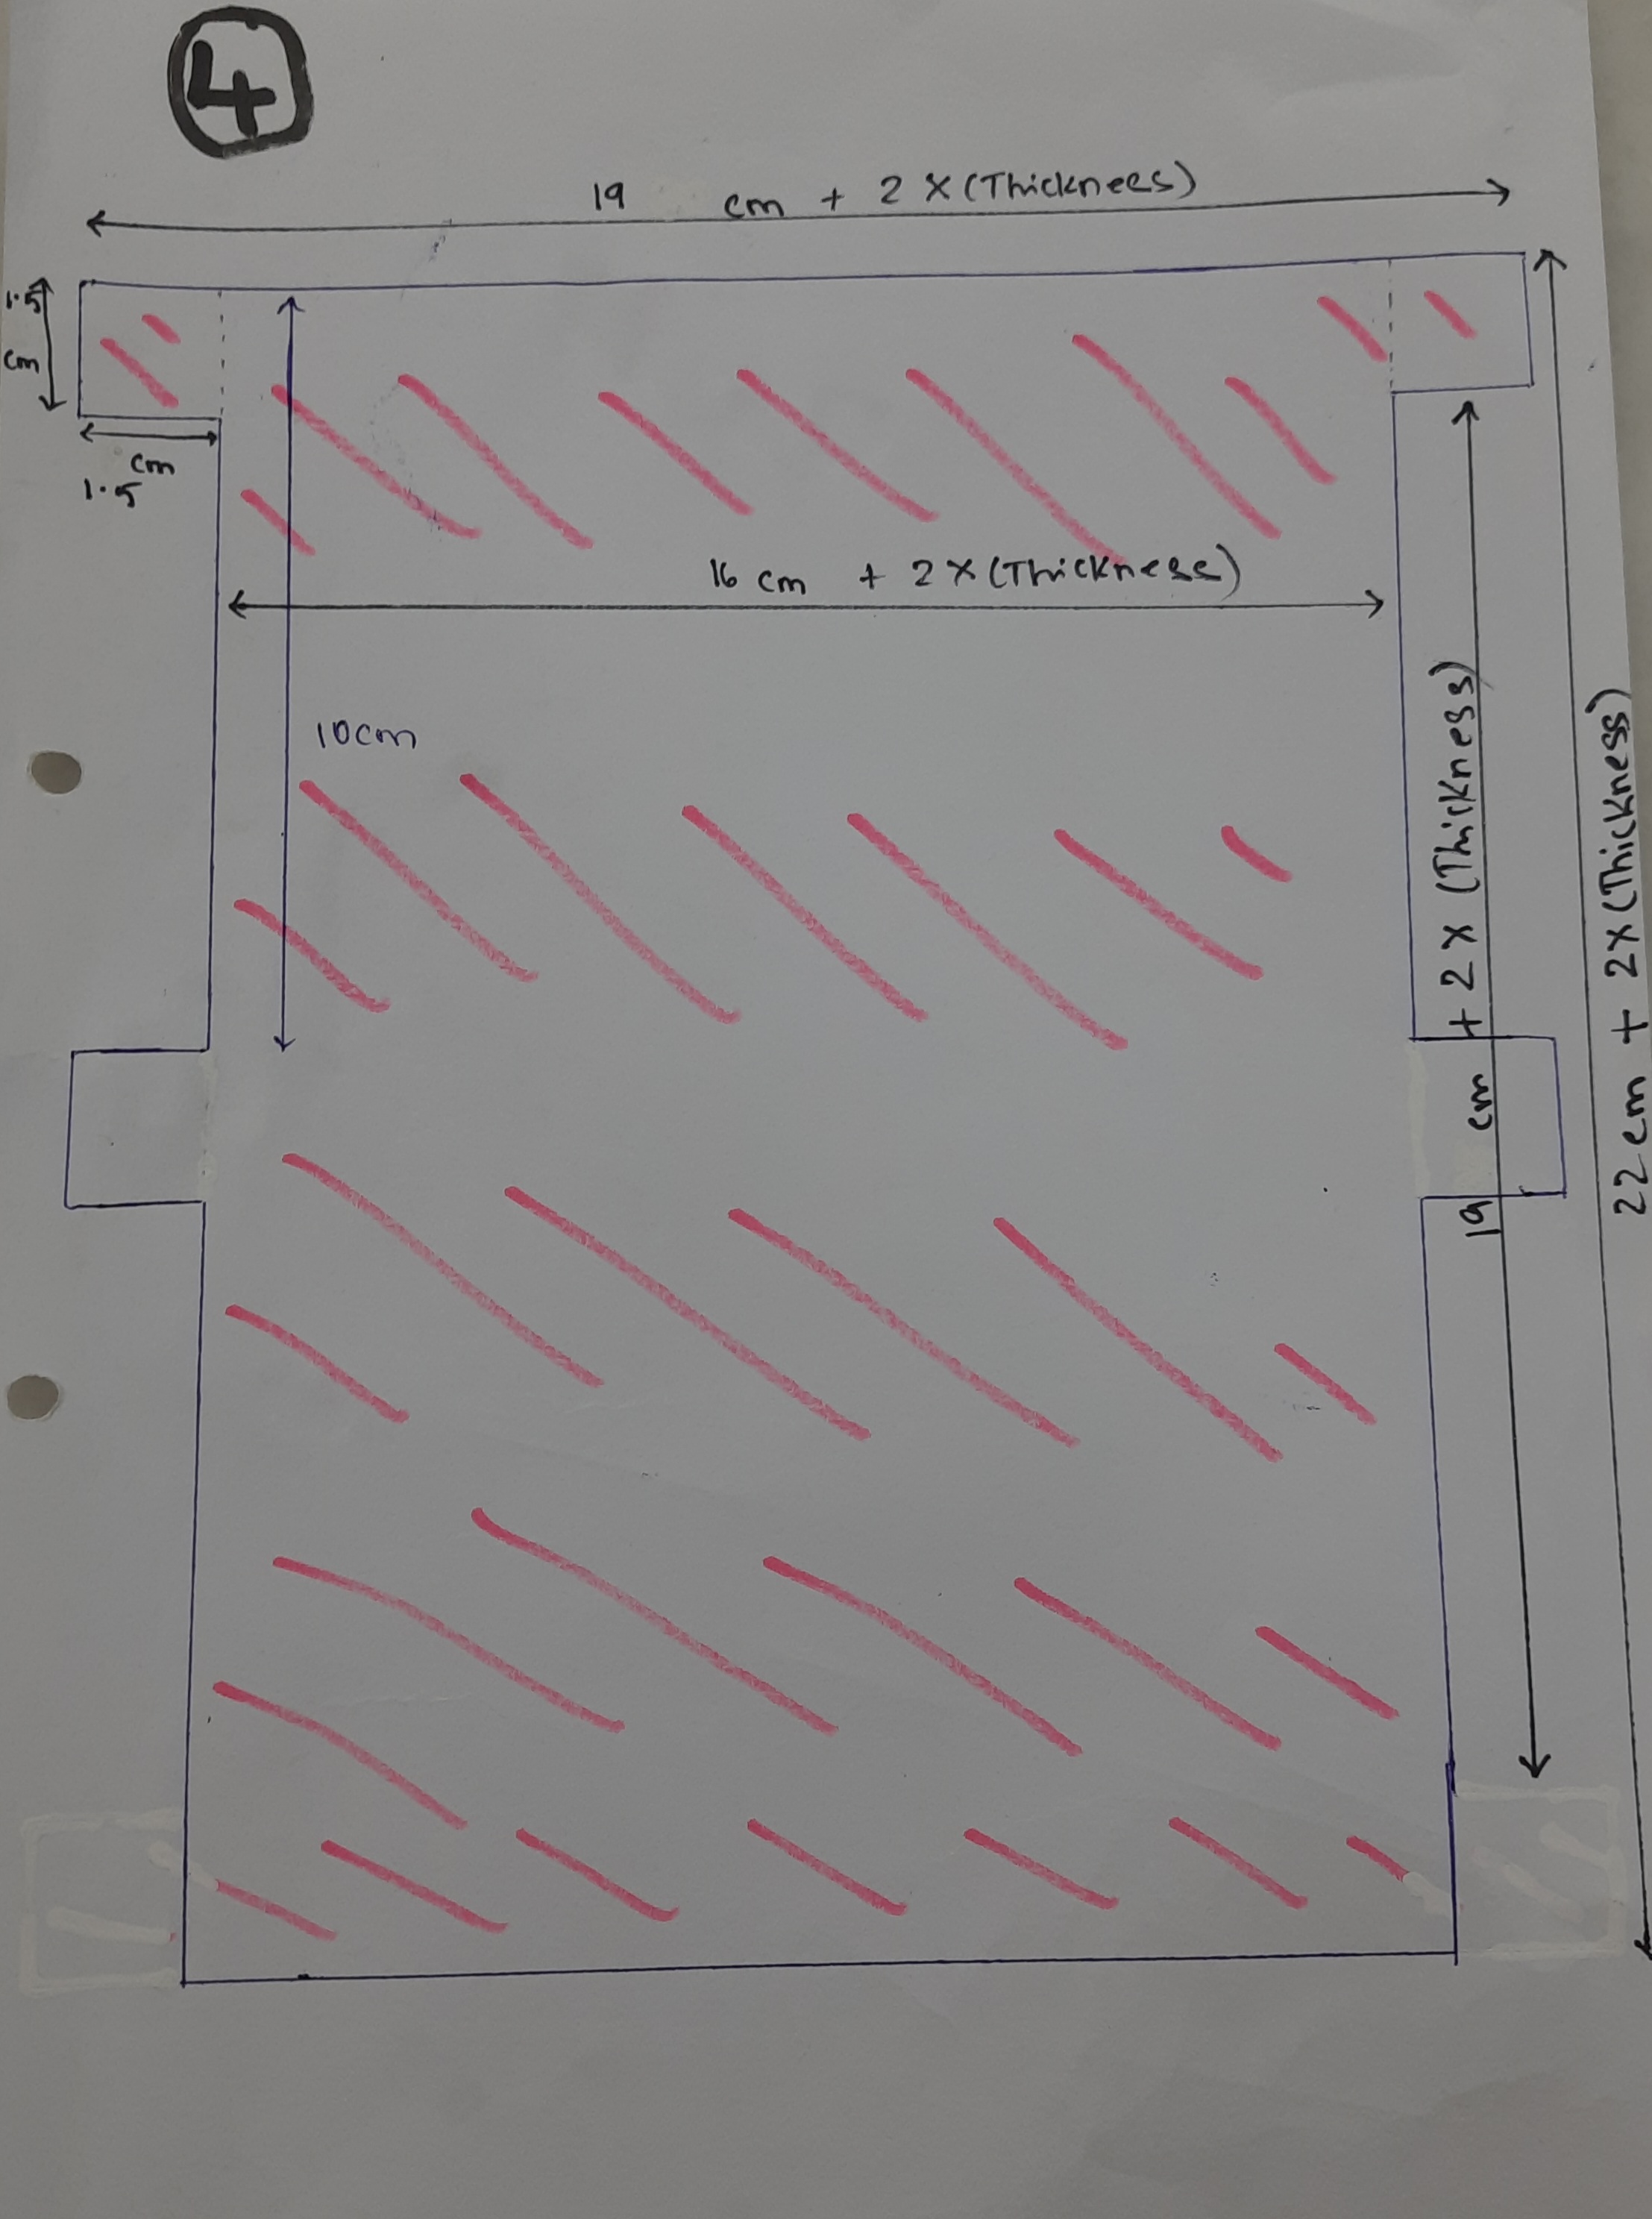 4
19 cm + 2 X (Thickness)
1.5
cm
cm
1.5
16 cm + 2 X (Thickness)
10cm
19 cm + 2 X (Thickness)
22 cm + 2X (Thickness)